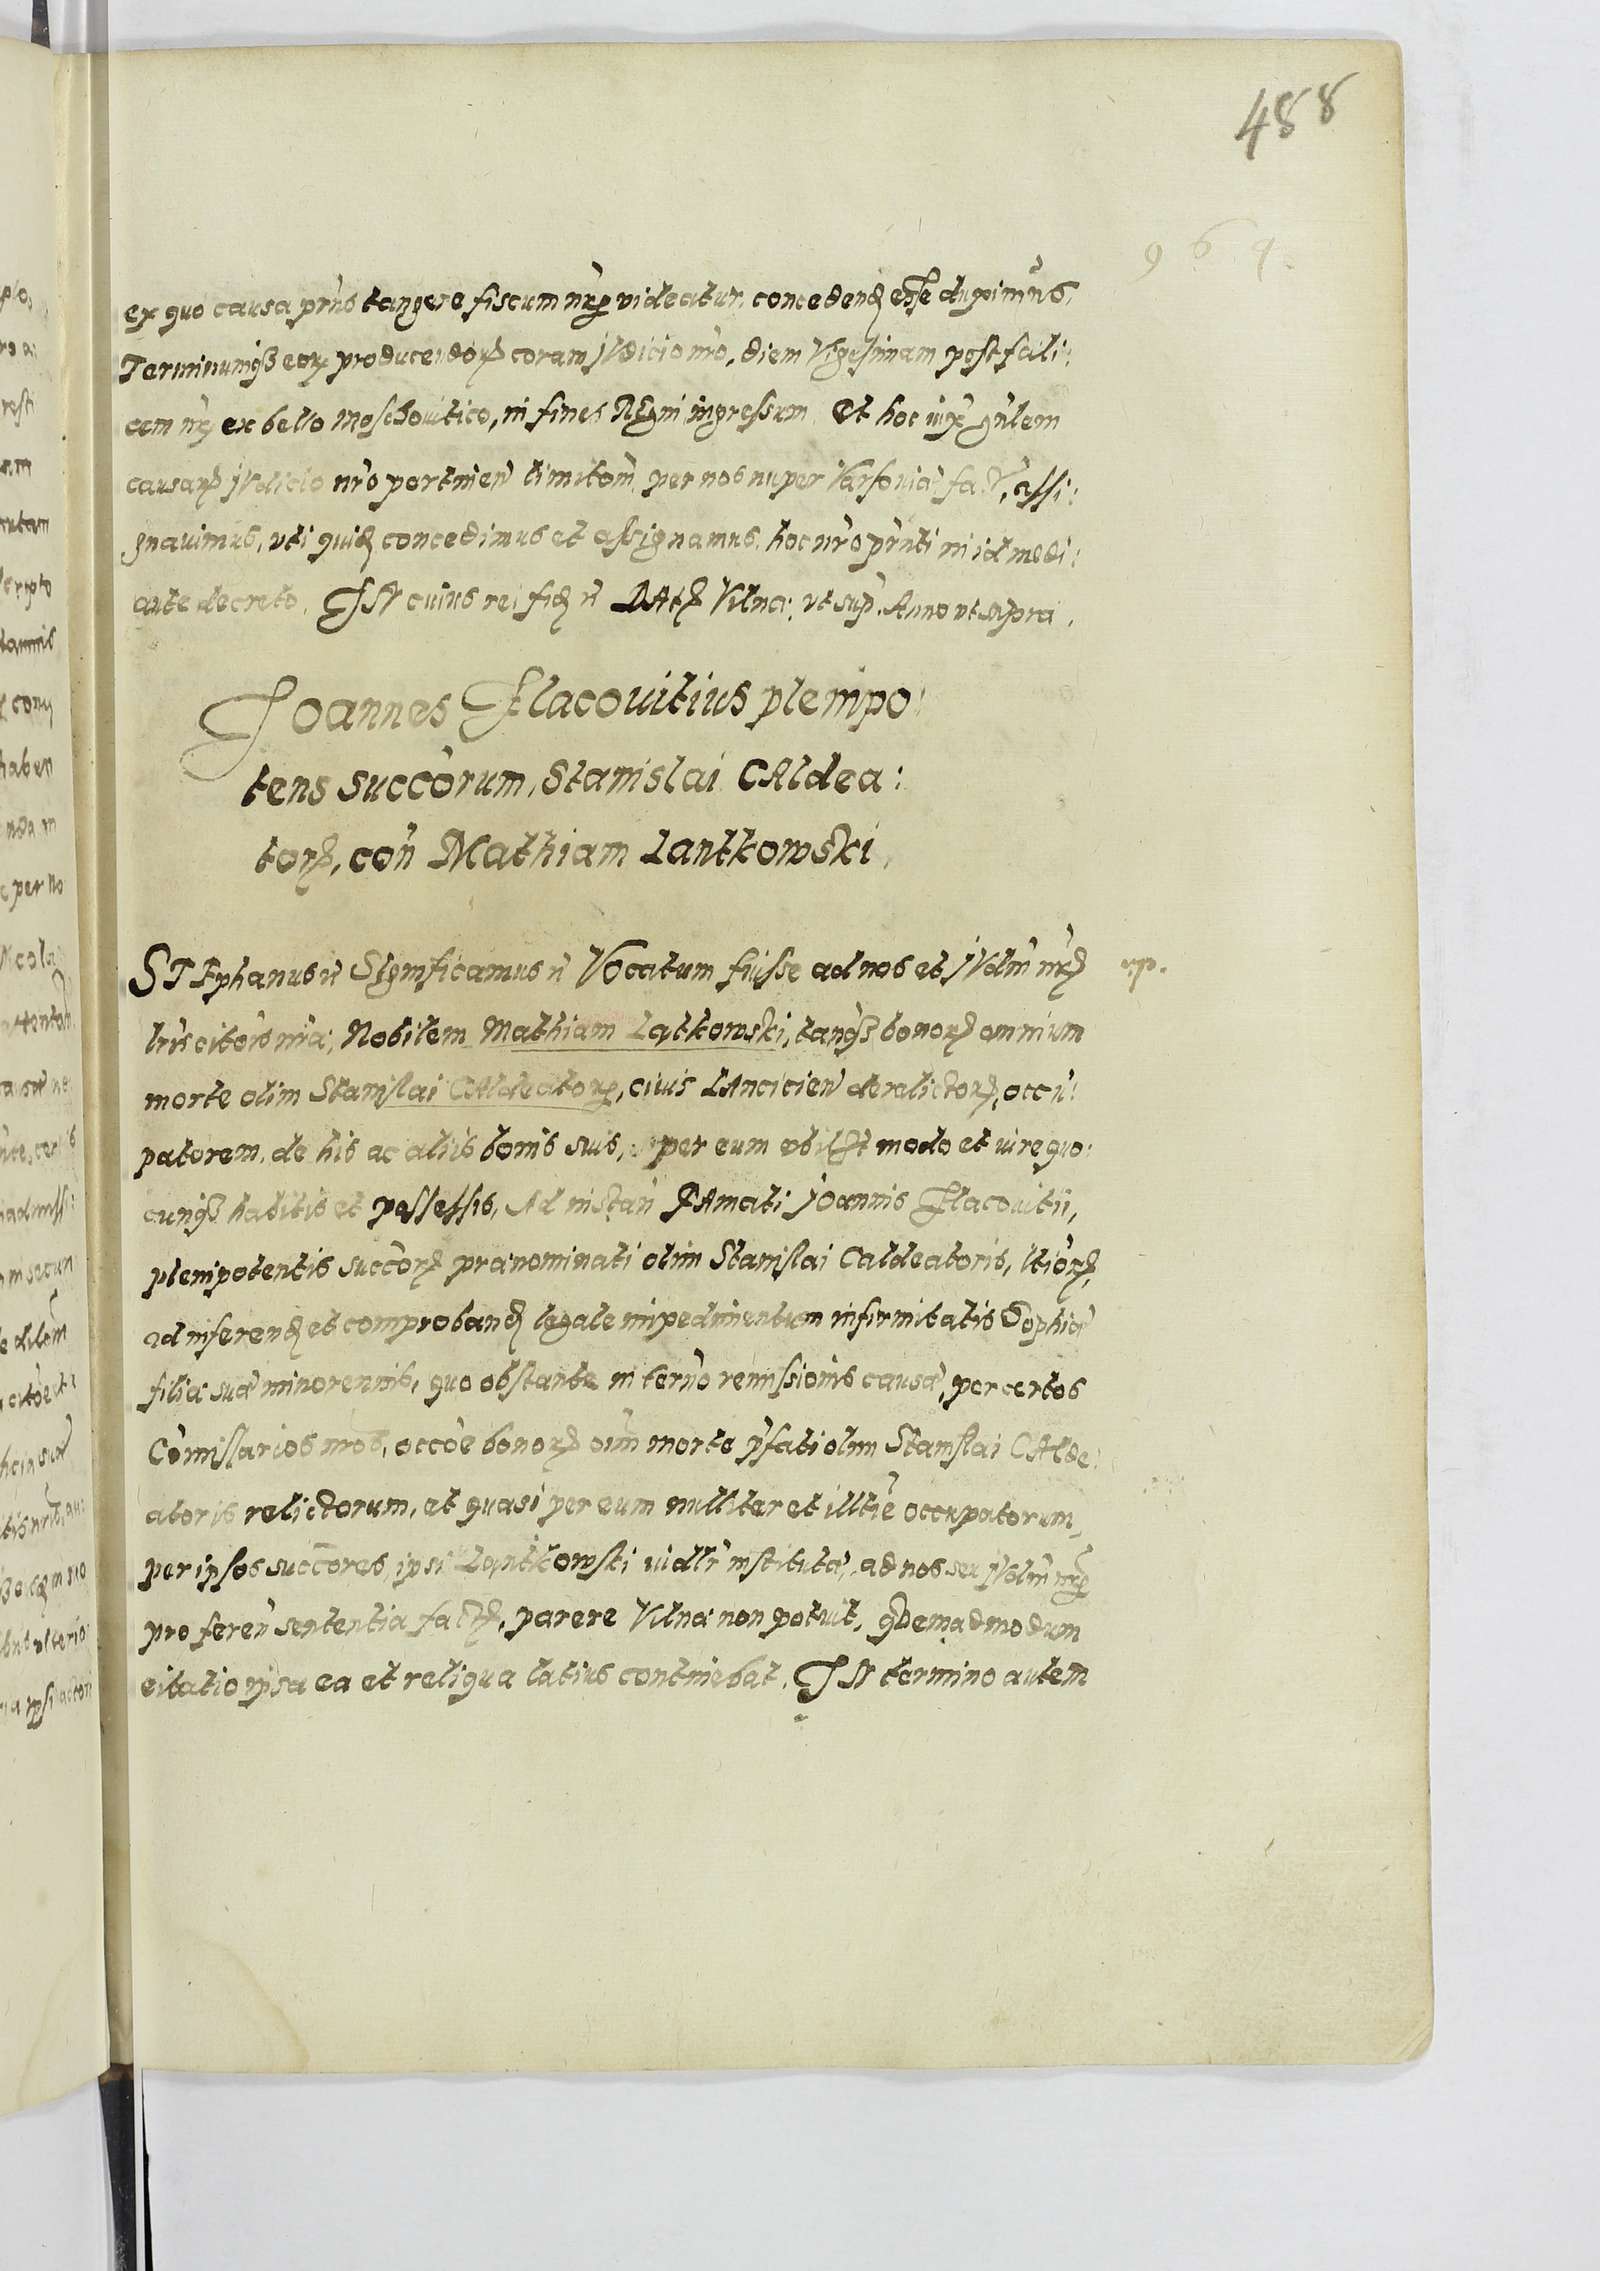 488
ex quo causa prñs tangere fiscum nrũ videatur, concedend esse duximus,
Terminumq₃ eorꝝ producendorꝝ coram IVdicio nrõ, diem Vigesimam post fœli:
cem nrũ ex bello Moschouitico, in fines REgni ingressum. Et hoc iux gñlem
causarꝝ IVdicio nrõ pertineñ limitõm, per nos nuper Varsouiæ fact, assi:
gnauimus, vti quid concedimus et assignamus, hoc nrõ prñti in id medi:
ante decreto. IN cuius rei fid ñ DAt Vilnæ, vt sup. Anno vt supra.
Joannes Flacouitius plenipo:
tens succorum, Stanislai CAldea:
torꝭ, coñ Mathiam Lantkowski
STEphanus ñ SIgnificamus ñ VOcatum fuisse ad nos et IVdm nrũ
lris citõrs nrĩs, Nobilem Mathiam Latkowski, tanq₃ bonorꝝ omnium
morte olim Stanislai CAldeatorꝭ, ciuis LAnciciẽn derelictorꝝ, occu:
patorem, de his ac aliis bonis suis, per eum vbilibet modo et iure quo:
cunq₃ habitis et possessis, Ad instañ FAmati IOannis Flacouitii,
plenipotentis succorꝝ prænominati olim Stanislai Caldeatoris, ltiorꝝ,
ad inferend et comproband legale impedimentum infirmitatis Sophiæ
filiæ suæ minorennis, quo obstante in terño remissionis causæ, per certos
Comissarios nros, occõe bonorꝝ oim morte pfati olim Stanislai CAlde:
atoris relictorum, et quasi per eum nulliter et illtie occupatorum,
per ipsos succores, ipsi Lantkowski iudlr institutæ, ad nos seu IVdm nrũ
pro fereñ sententia fact, parere Vilnæ non potuit, qVemadmodum
citatio ipsa ea et reliqua latius continebat. IN termino autem